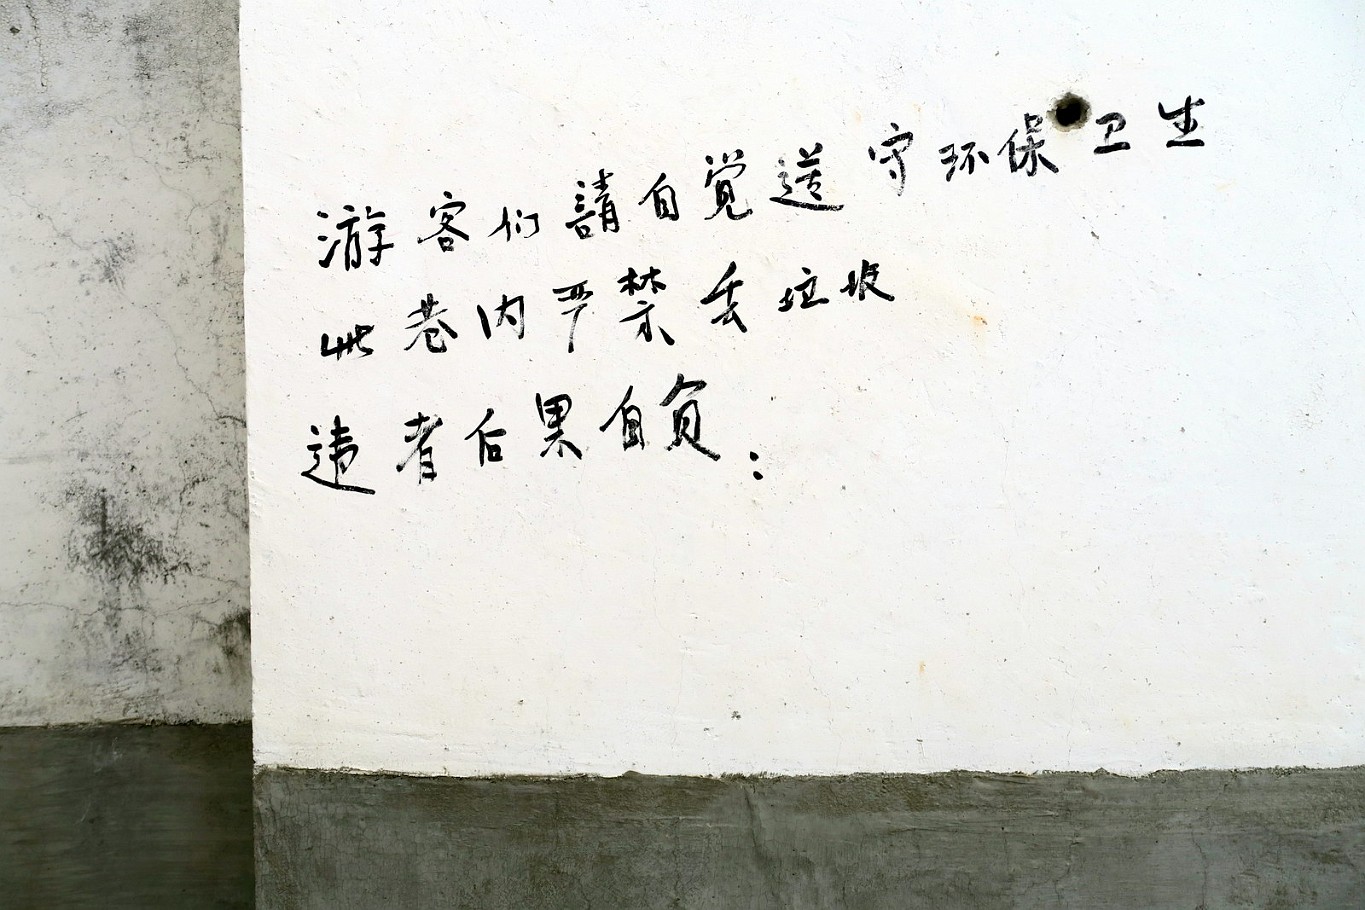 游客们請自覚送守环保卫生
此巷内严禁丢垃圾
违者后果自负: